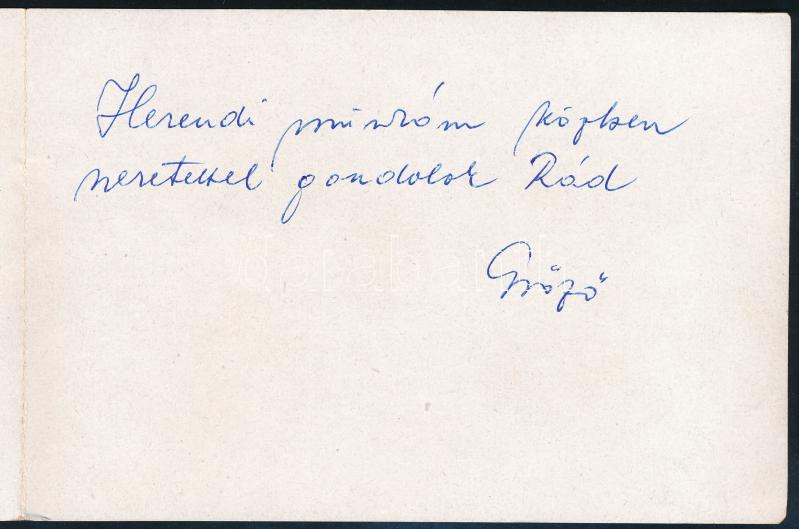 Herendi műszióm közben
szeretettel gondolok Rád
Győző
darabanth